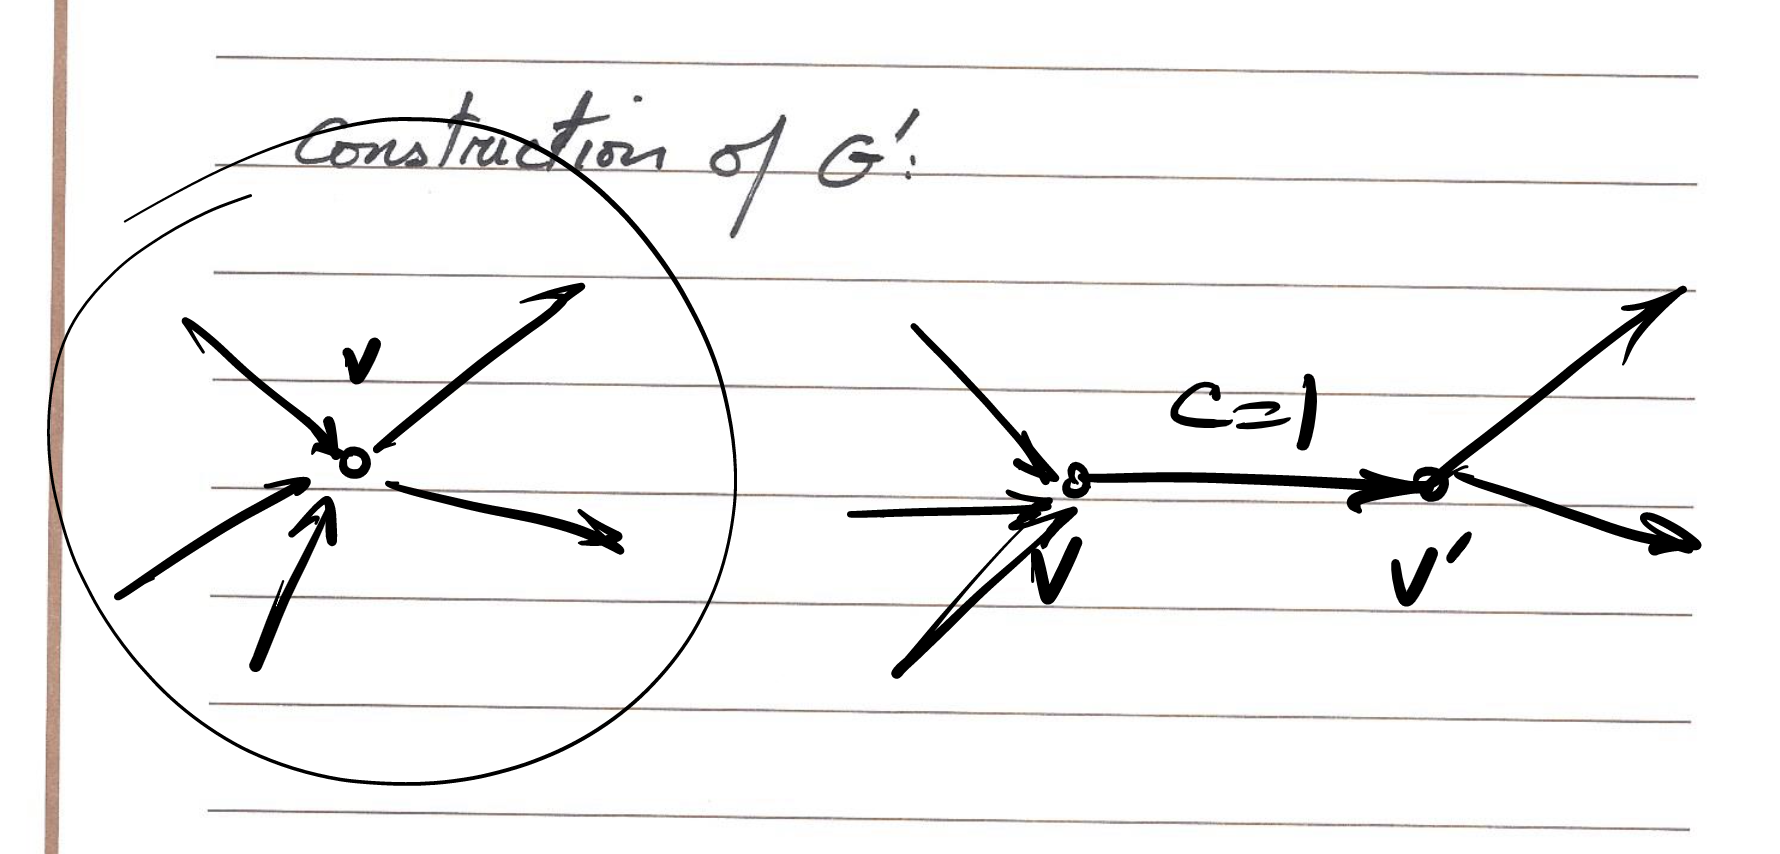 Construction of G':
V
C=1
V
V'